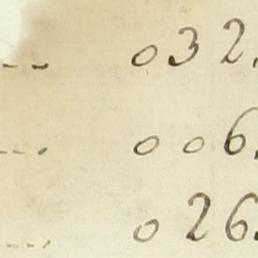 ... 032.
... 006.
... 026.